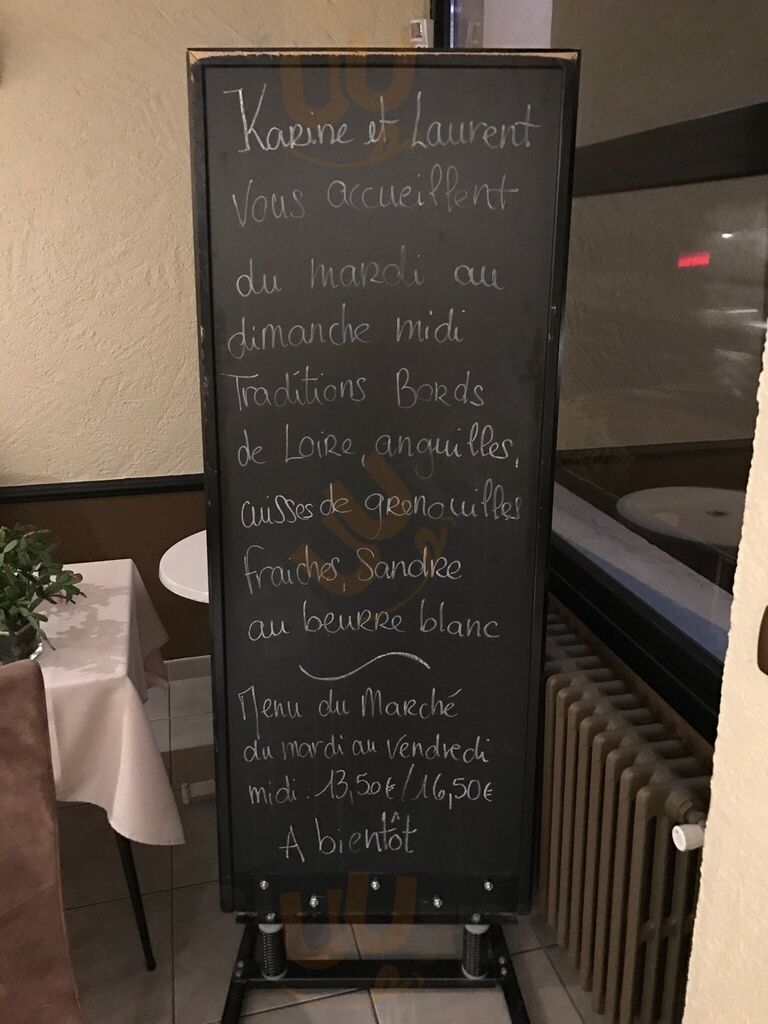 Karine et Laurent
Vous accueillent
du mardi au
dimanche midi
Traditions Bords
de Loire, anguilles,
cuisses de grenouilles
fraiches, Sandre
au beurre blanc
Menu du Marché
du mardi au vendredi
midi : 13,50€/16,50€
A bientôt